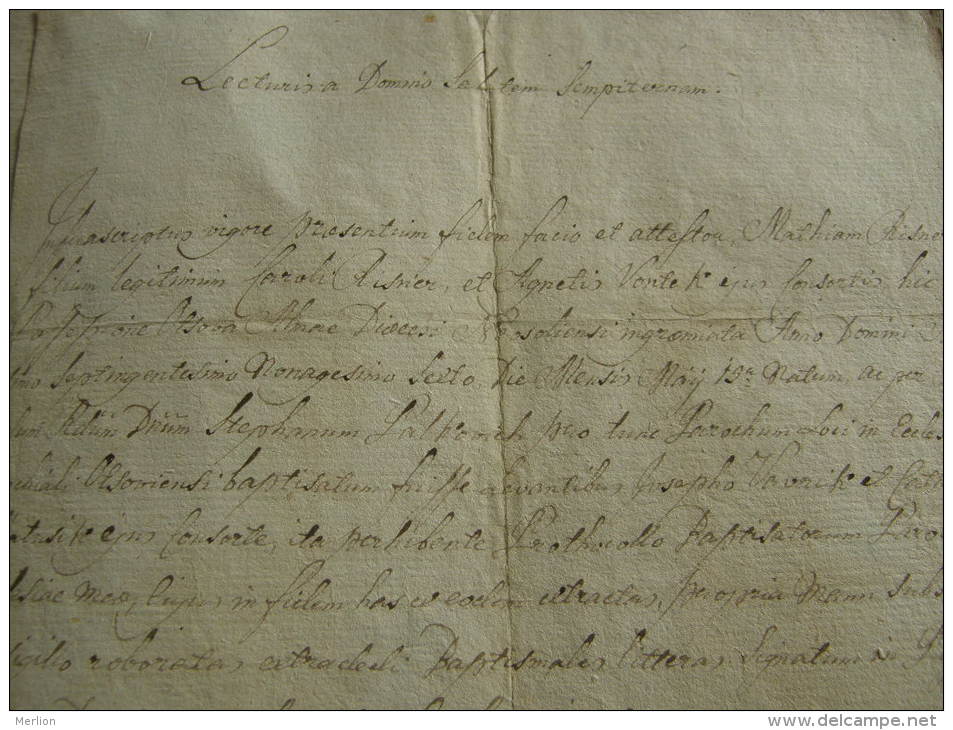 Lecturis a Domino Salutem Sempiternam.
Infrascriptus vigore præsentium fidem facio et attestor, Mathiam Risner
filium legitimum Caroli Risner, et Agnetis Vontek ejus Consortis, hic
Possessione Diœcesi ingremiata Anno Domini
Septingentesimo Nonagesimo Sexto, Die Mensis Maÿ 19na Natum, ac per
Adm̃ Dnũm Stephanum Palkovich pro tunc Parochum Loci in Eccles
baptisatum fuisse Levantibus Josepho Vavrik et Cath
ejus Consorte, ita perhibente Prothocollo Baptisatorum Paro
siae meae, Cujus in fidem has ex eodem extractas, propria Manu subs
igilio roboratas extradedi Baptismales litteras, Signatum in
Merlion
www.delcampe.net